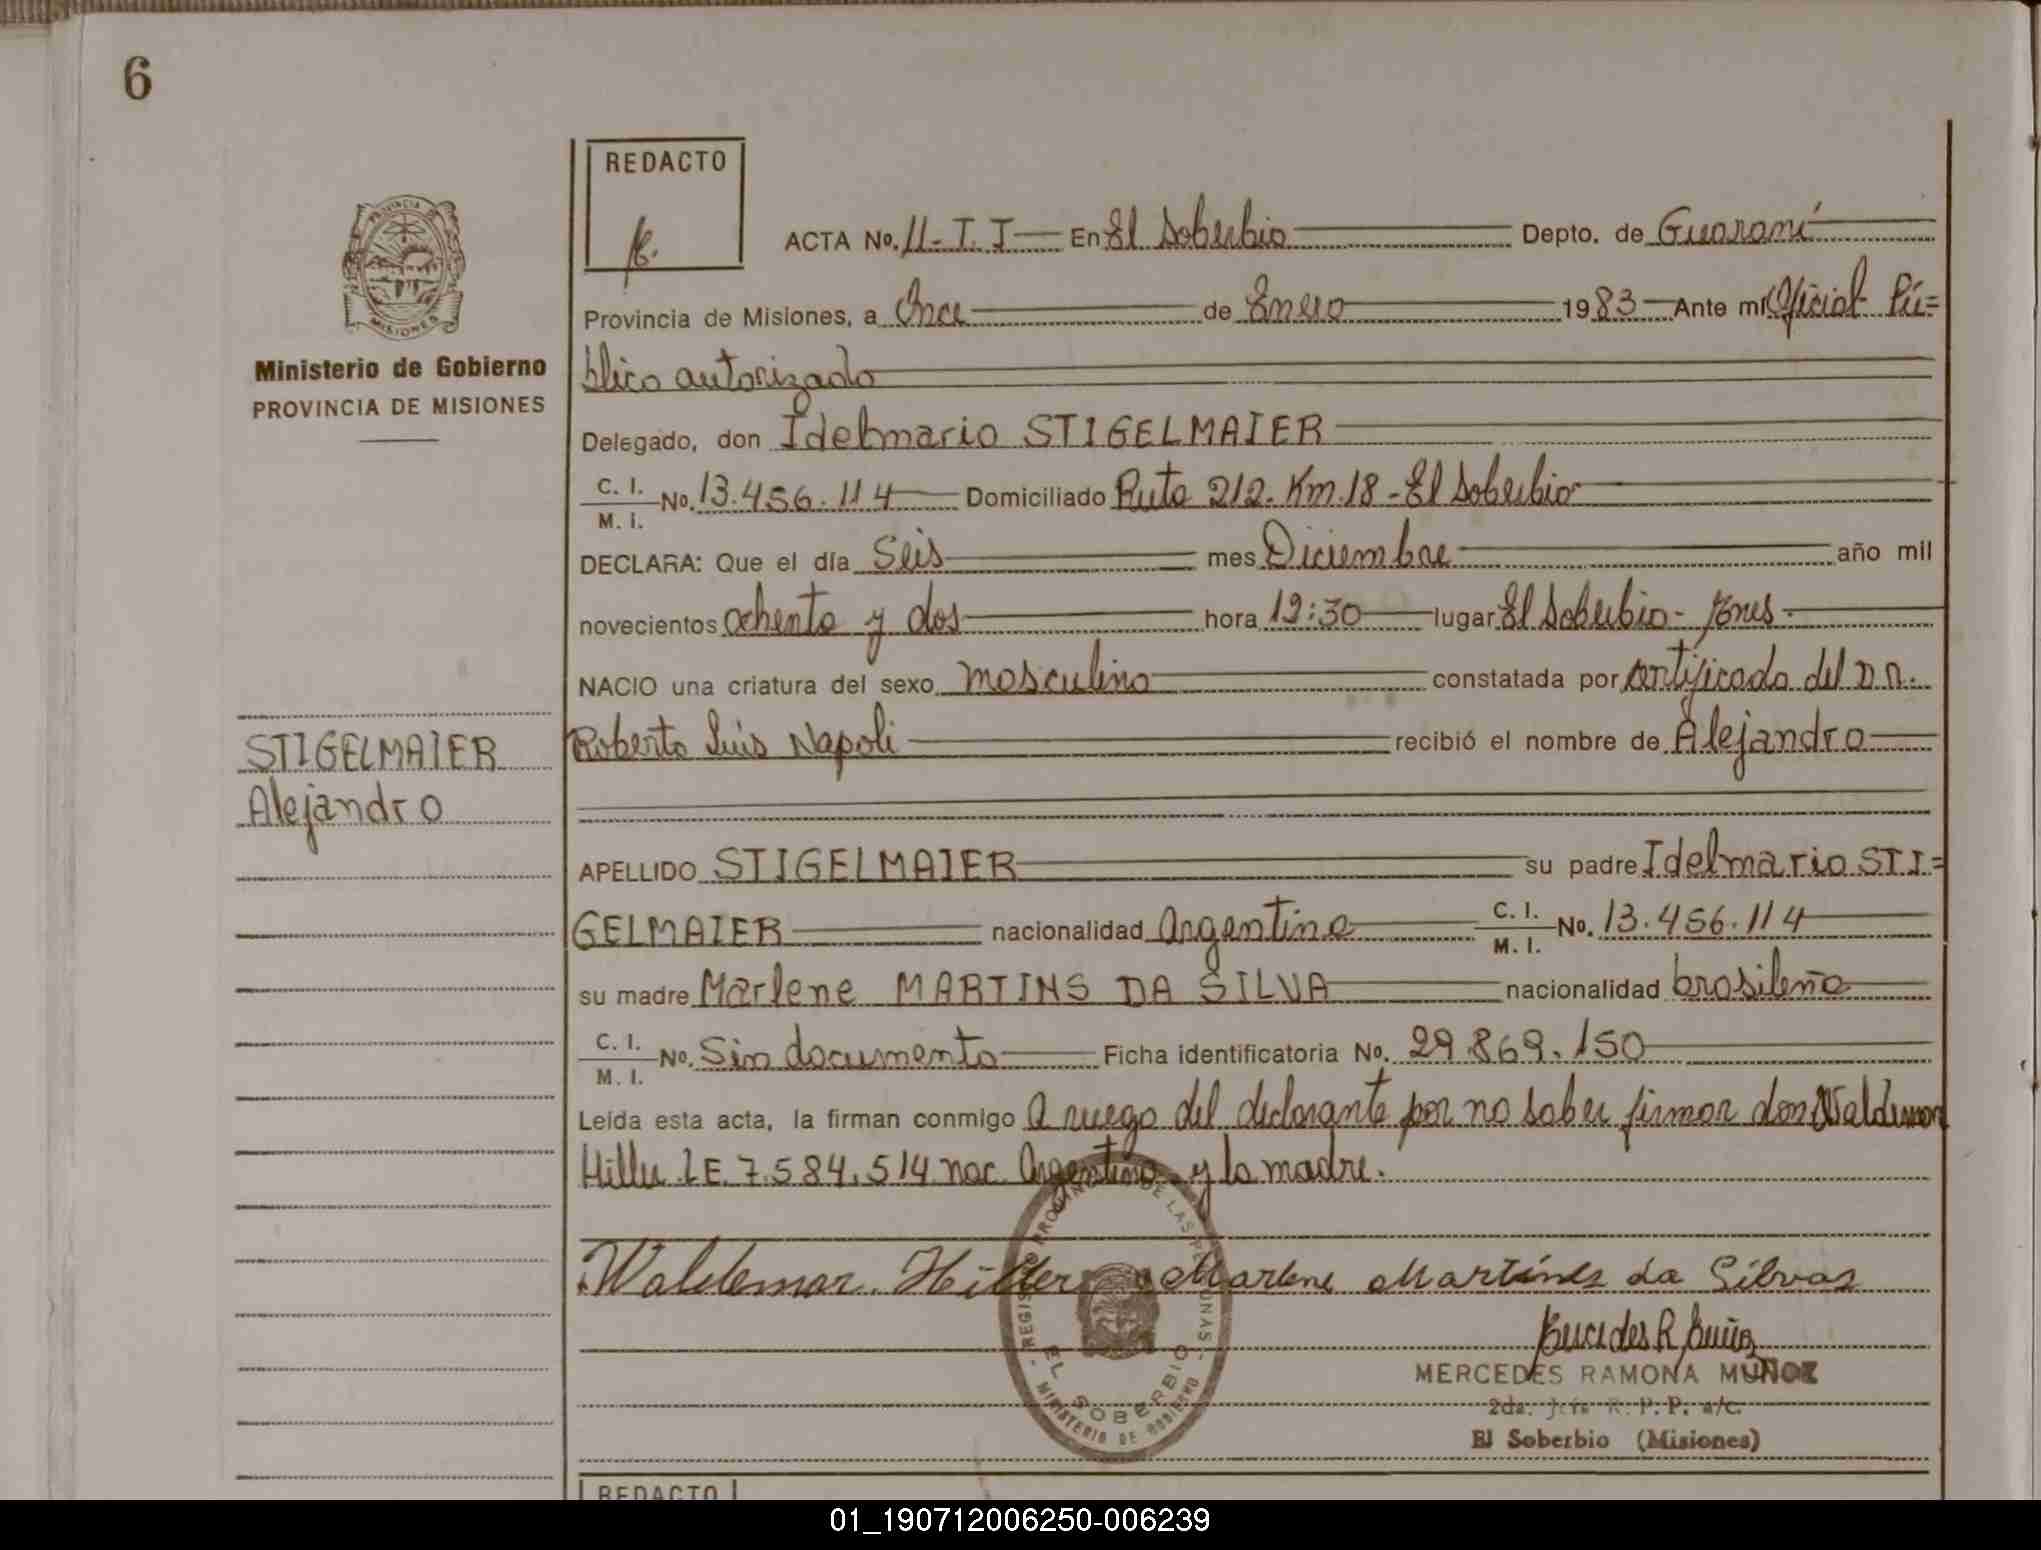 6
REDACTO
ACTA No. 11-T.I En El Soberbio Depto. de Guaraní
Provincia de Misiones, a Once de Enero 1983 Ante mí Oficial Pú=
Ministerio de Gobierno
PROVINCIA DE MISIONES
blico autorizado
Delegado, don Idelmario STIGELMAIER
C. I.
M. I. No. 13.456.114 Domiciliado Ruta 212. Km.18-El Soberbio
DECLARA: Que el día Seis mes Diciembre año mil
novecientos ochenta y dos hora 12:30 lugar El Soberbio-
NACIO una criatura del sexo masculino constatada por certificado del
STIGELMAIER
Alejandro
Roberto Luis Napoli recibió el nombre de Alejandro
APELLIDO STIGELMAIER su padre Idelmario STI=
GELMAIER nacionalidad Argentina C. I.
M. I. No. 13.456.114
su madre Marlene MARTINS DA SILVA nacionalidad brasileña
C. I.
M. I. No. Sin documento Ficha identificatoria No. 29.869.150
Leída esta acta, la firman conmigo a ruego del declarante por no saber firmar don Waldemar
Hiller L.E. 7.584.514 nac. Argentino y la madre.
Waldemar. Hiller Marlene Martínes da Silvas
Mercedes R. Muñoz
MERCEDES RAMONA MUÑOZ
2da. Jefe R. P. P. a/c.
El Soberbio (Misiones)
REGISTRO PROVINCIAL DE LAS PERSONAS
EL SOBERBIO
MINISTERIO DE GOBIERNO
PROVINCIA DE
MISIONES
REDACTO
01_190712006250-006239